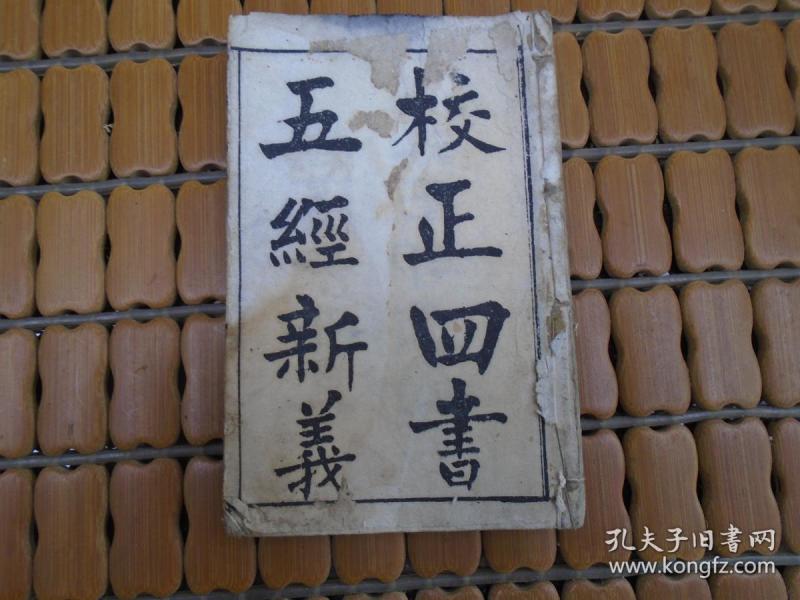 校正四書
五經新義
孔夫子旧书网
www.kongfz.com